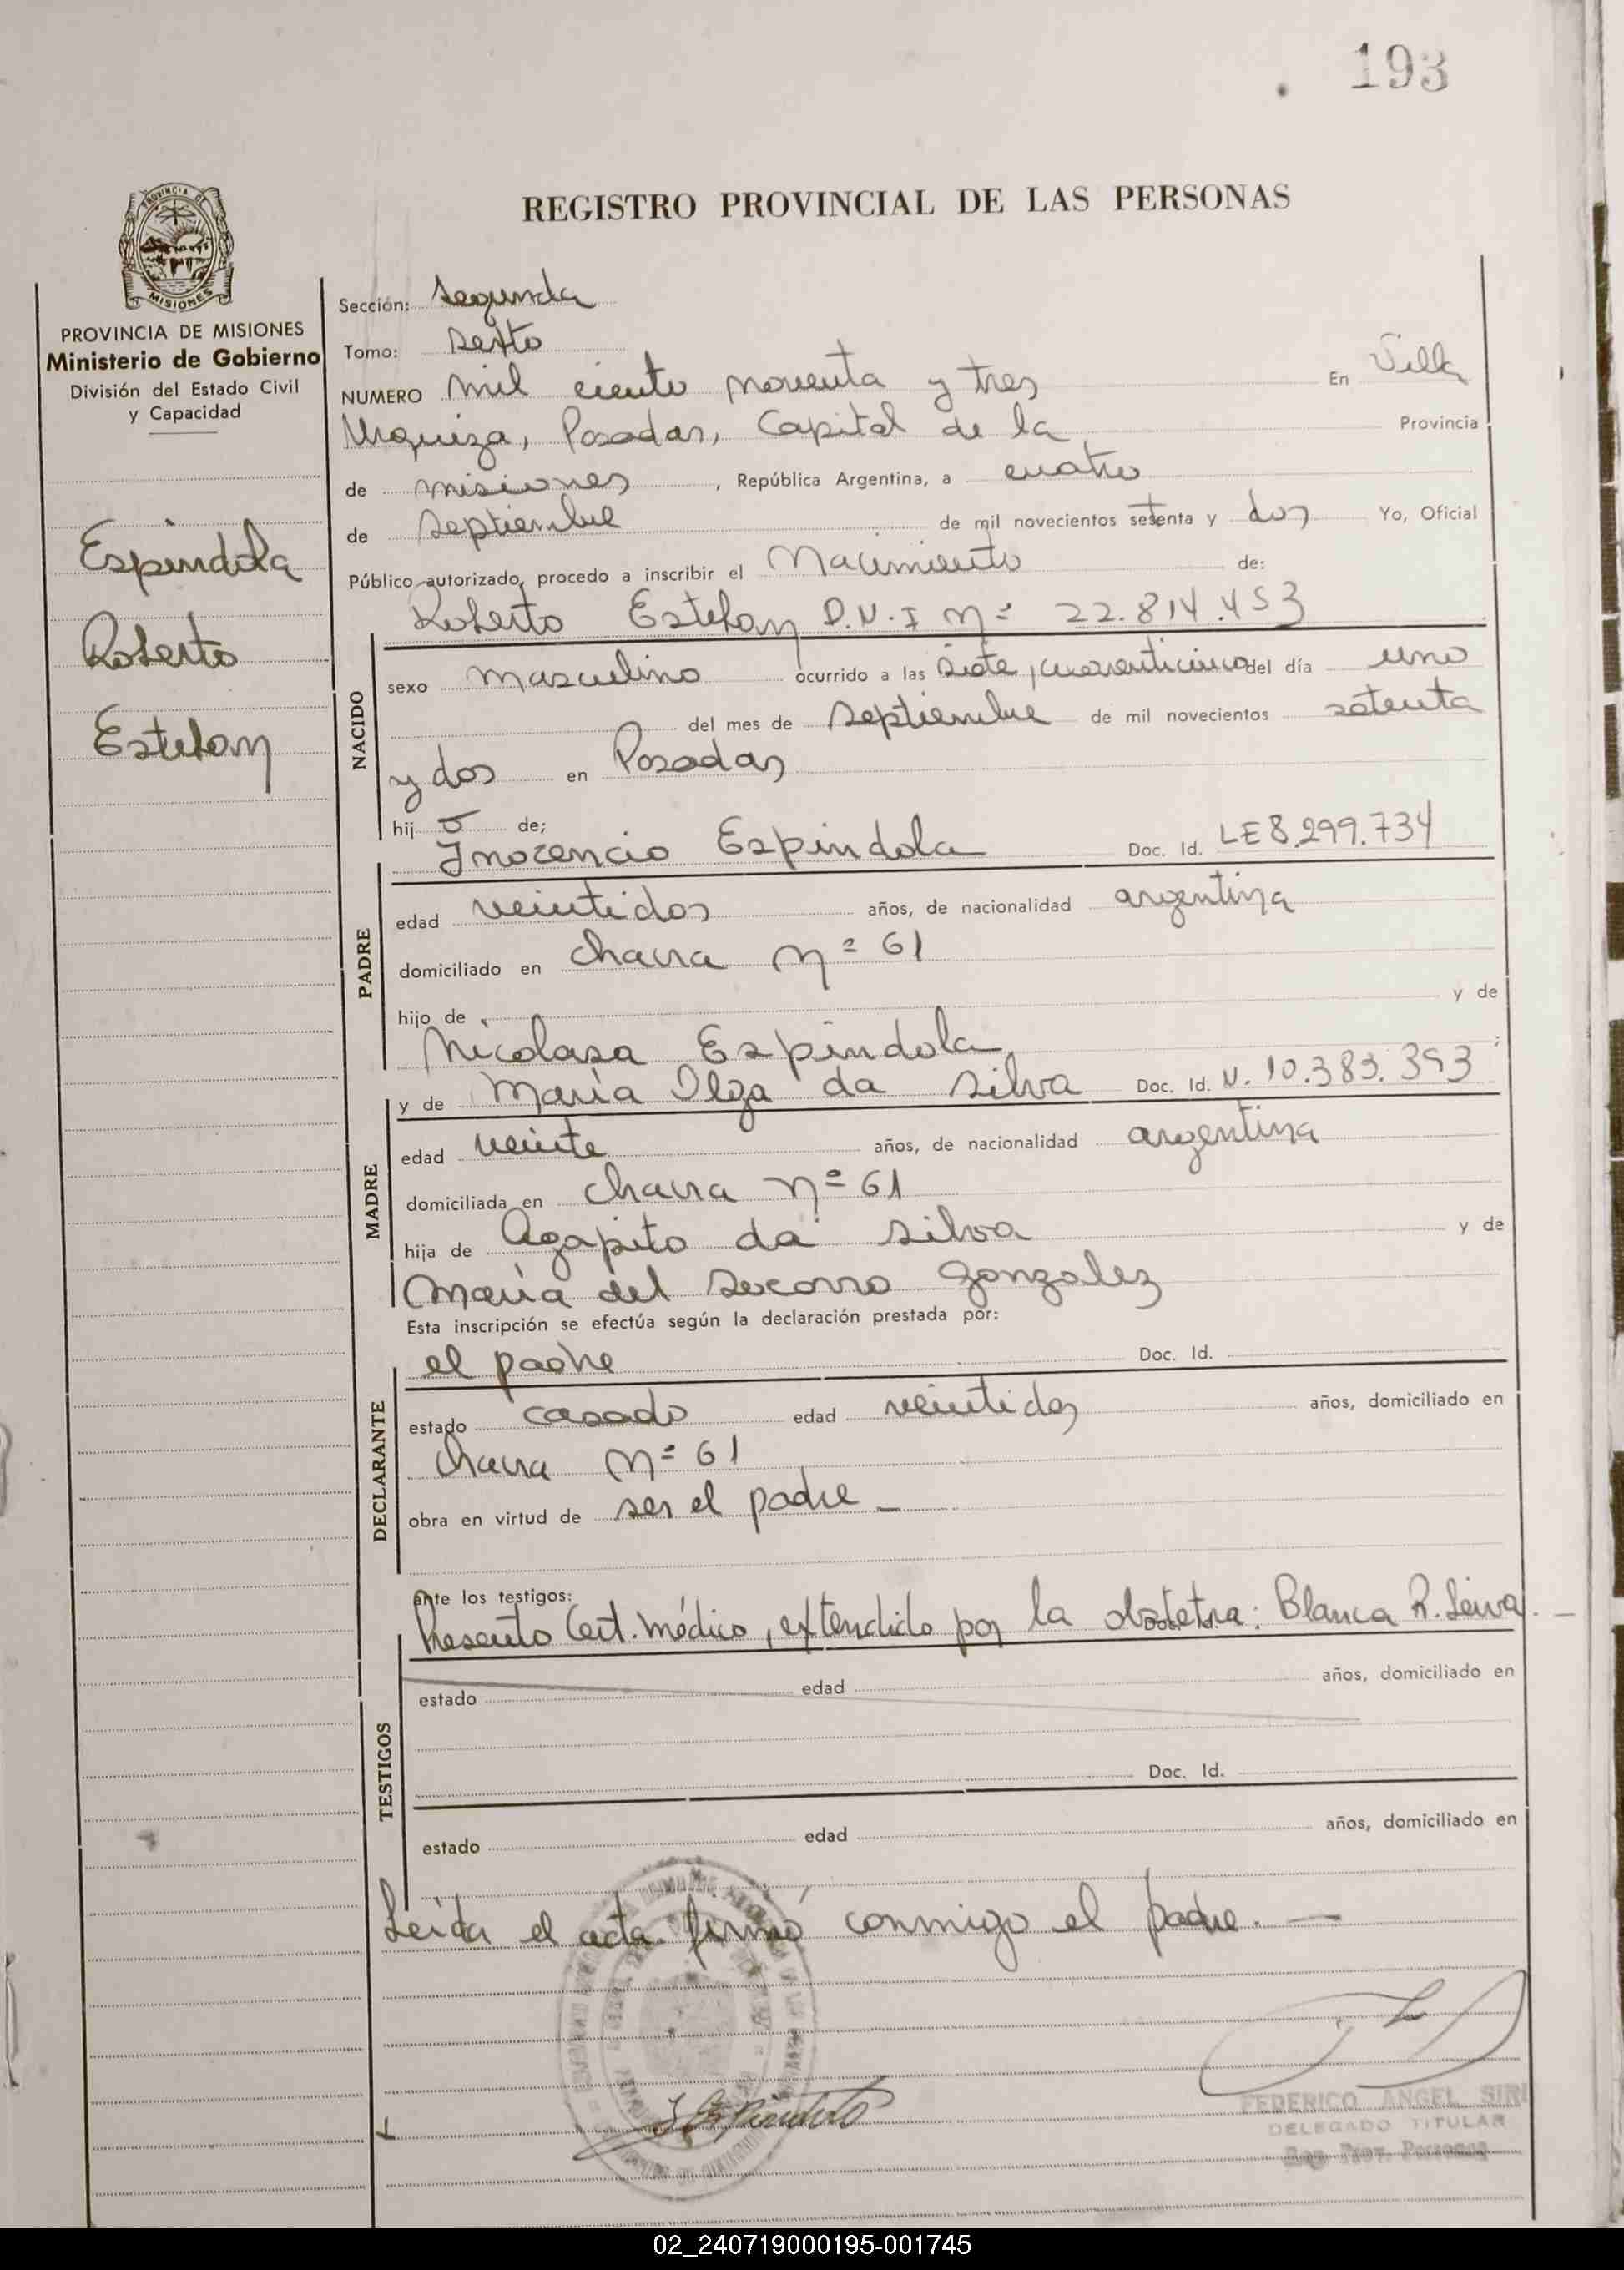 193
PROVINCIA DE
MISIONES
REGISTRO PROVINCIAL DE LAS PERSONAS
PROVINCIA DE MISIONES
Ministerio de Gobierno
División del Estado Civil
y Capacidad
Espindola
Roberto
Esteban
Sección: Segunda
Tomo: Sexto
NUMERO mil ciento noventa y tres En Villa
Urquiza, Posadas, Capital de la Provincia
de misiones, República Argentina, a cuatro
de Septiembre de mil novecientos setenta y dos Yo, Oficial
Público autorizado, procedo a inscribir el Nacimiento de:
Roberto Esteban D.N.I nº 22.814.453
NACIDO
sexo masculino ocurrido a las siete, cuarenticinco del día uno
del mes de Septiembre de mil novecientos setenta
y dos en Posadas
hij o de;
Inocencio Espindola Doc. Id. LE 8.299.734
PADRE
edad veintidos años, de nacionalidad argentina
domiciliado en chacra nº 61
hijo de y de
Nicolasa Espindola ;
y de María Olga da Silva Doc. Id. N. 10.383.393
MADRE
edad veinte años, de nacionalidad argentina
domiciliada en chacra nº 61
hija de Agapito da Silva y de
María del Socorro Gonzalez
Esta inscripción se efectúa según la declaración prestada por:
el padre Doc. Id.
DECLARANTE
estado casado edad veintidos años, domiciliado en
chacra nº 61
obra en virtud de ser el padre _
ante los testigos:
Presento Cert. médico, extendido por la obstetra: Blanca R. Leiva. _
Doc. Id.
TESTIGOS
estado edad años, domiciliado en
Doc. Id.
estado edad años, domiciliado en
Leída el acta firmó conmigo el padre. —
J Espindola
FEDERICO ANGEL SIRI
DELEGADO TITULAR
Reg. Prov. Personas
02_240719000195-001745